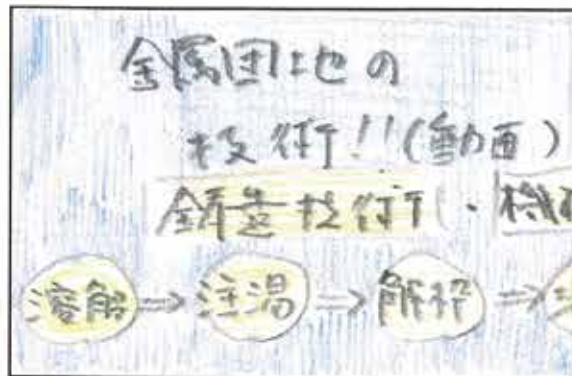 金属団地の
技術!!(動画)
鋳造技術・機
溶解⇒注湯⇒解枠⇒